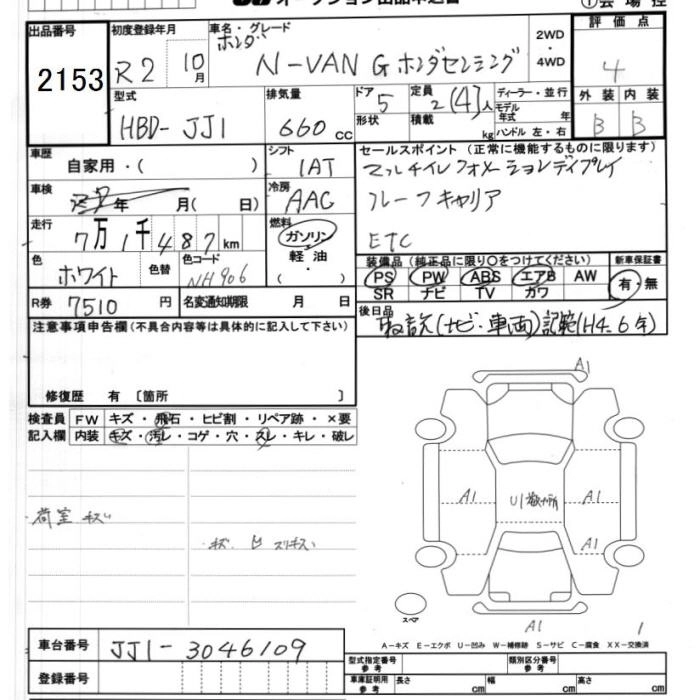 オークション出品申込書
①会場控
出品番号 2153
初度登録年月 R2 10月
車名・グレード ホンダ N-VAN G ホンダセンシング
2WD・4WD
評価点 4
型式 HBD-JJ1
排気量 660 cc
ドア 5 形状
定員 2(4)人 積載 kg
ディーラー・並行
モデル年式 年
ハンドル 左・右
外装 B 内装 B
車歴 自家用・( )
シフト 1AT
セールスポイント (正常に機能するものに限ります)
マルチインフォメーションディスプレイ
ルーフキャリア
ETC
車検 年 月( 日)
冷房 AAC
走行 7万1千487km
燃料 ガソリン・軽油・( )
色 ホワイト 色替
色コード NH906
装備品 (純正品に限り○をつけてください)
PS PW ABS エアB AW
SR ナビ TV カワ
新車保証書 有・無
R券 7510円
名変通知期限 月 日
後日品 取説(ナビ・車両)記範(H4.6年)
注意事項申告欄(不具合内容等は具体的に記入して下さい)
修復歴 有〔箇所 〕
検査員記入欄
FW キズ・飛石・ヒビ割・リペア跡・×要
内装 キズ・汚レ・コゲ・穴・スレ・キレ・破レ
荷室 キズ
キズ
A1
A1 A1
U1
A1
A1
スペア
1
A-キズ E-エクボ U-凹み W-補修跡 S-サビ C-腐食 XX-交換済
車台番号 JJ1-3046109
登録番号
型式指定番号 参考
類別区分番号 参考
車庫証明用 参考 長さ cm 幅 cm 高さ cm